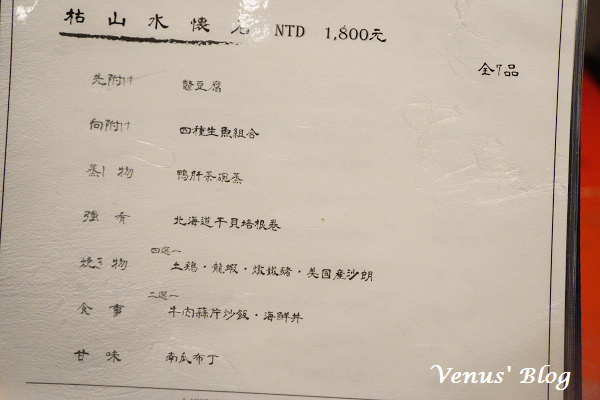 枯山水懷石 NTD 1,800元
全7品
先附け 鹽豆腐
向附け 四種生魚組合
蒸し物 鴨肝茶碗蒸
強肴 北海道干貝培根卷
焼き物 四選一 土鶏・龍蝦・炊拔豬・美国産沙朗
食事 二選一 牛肉蒜片炒飯・海鮮丼
甘味 南瓜布丁
Venus' Blog